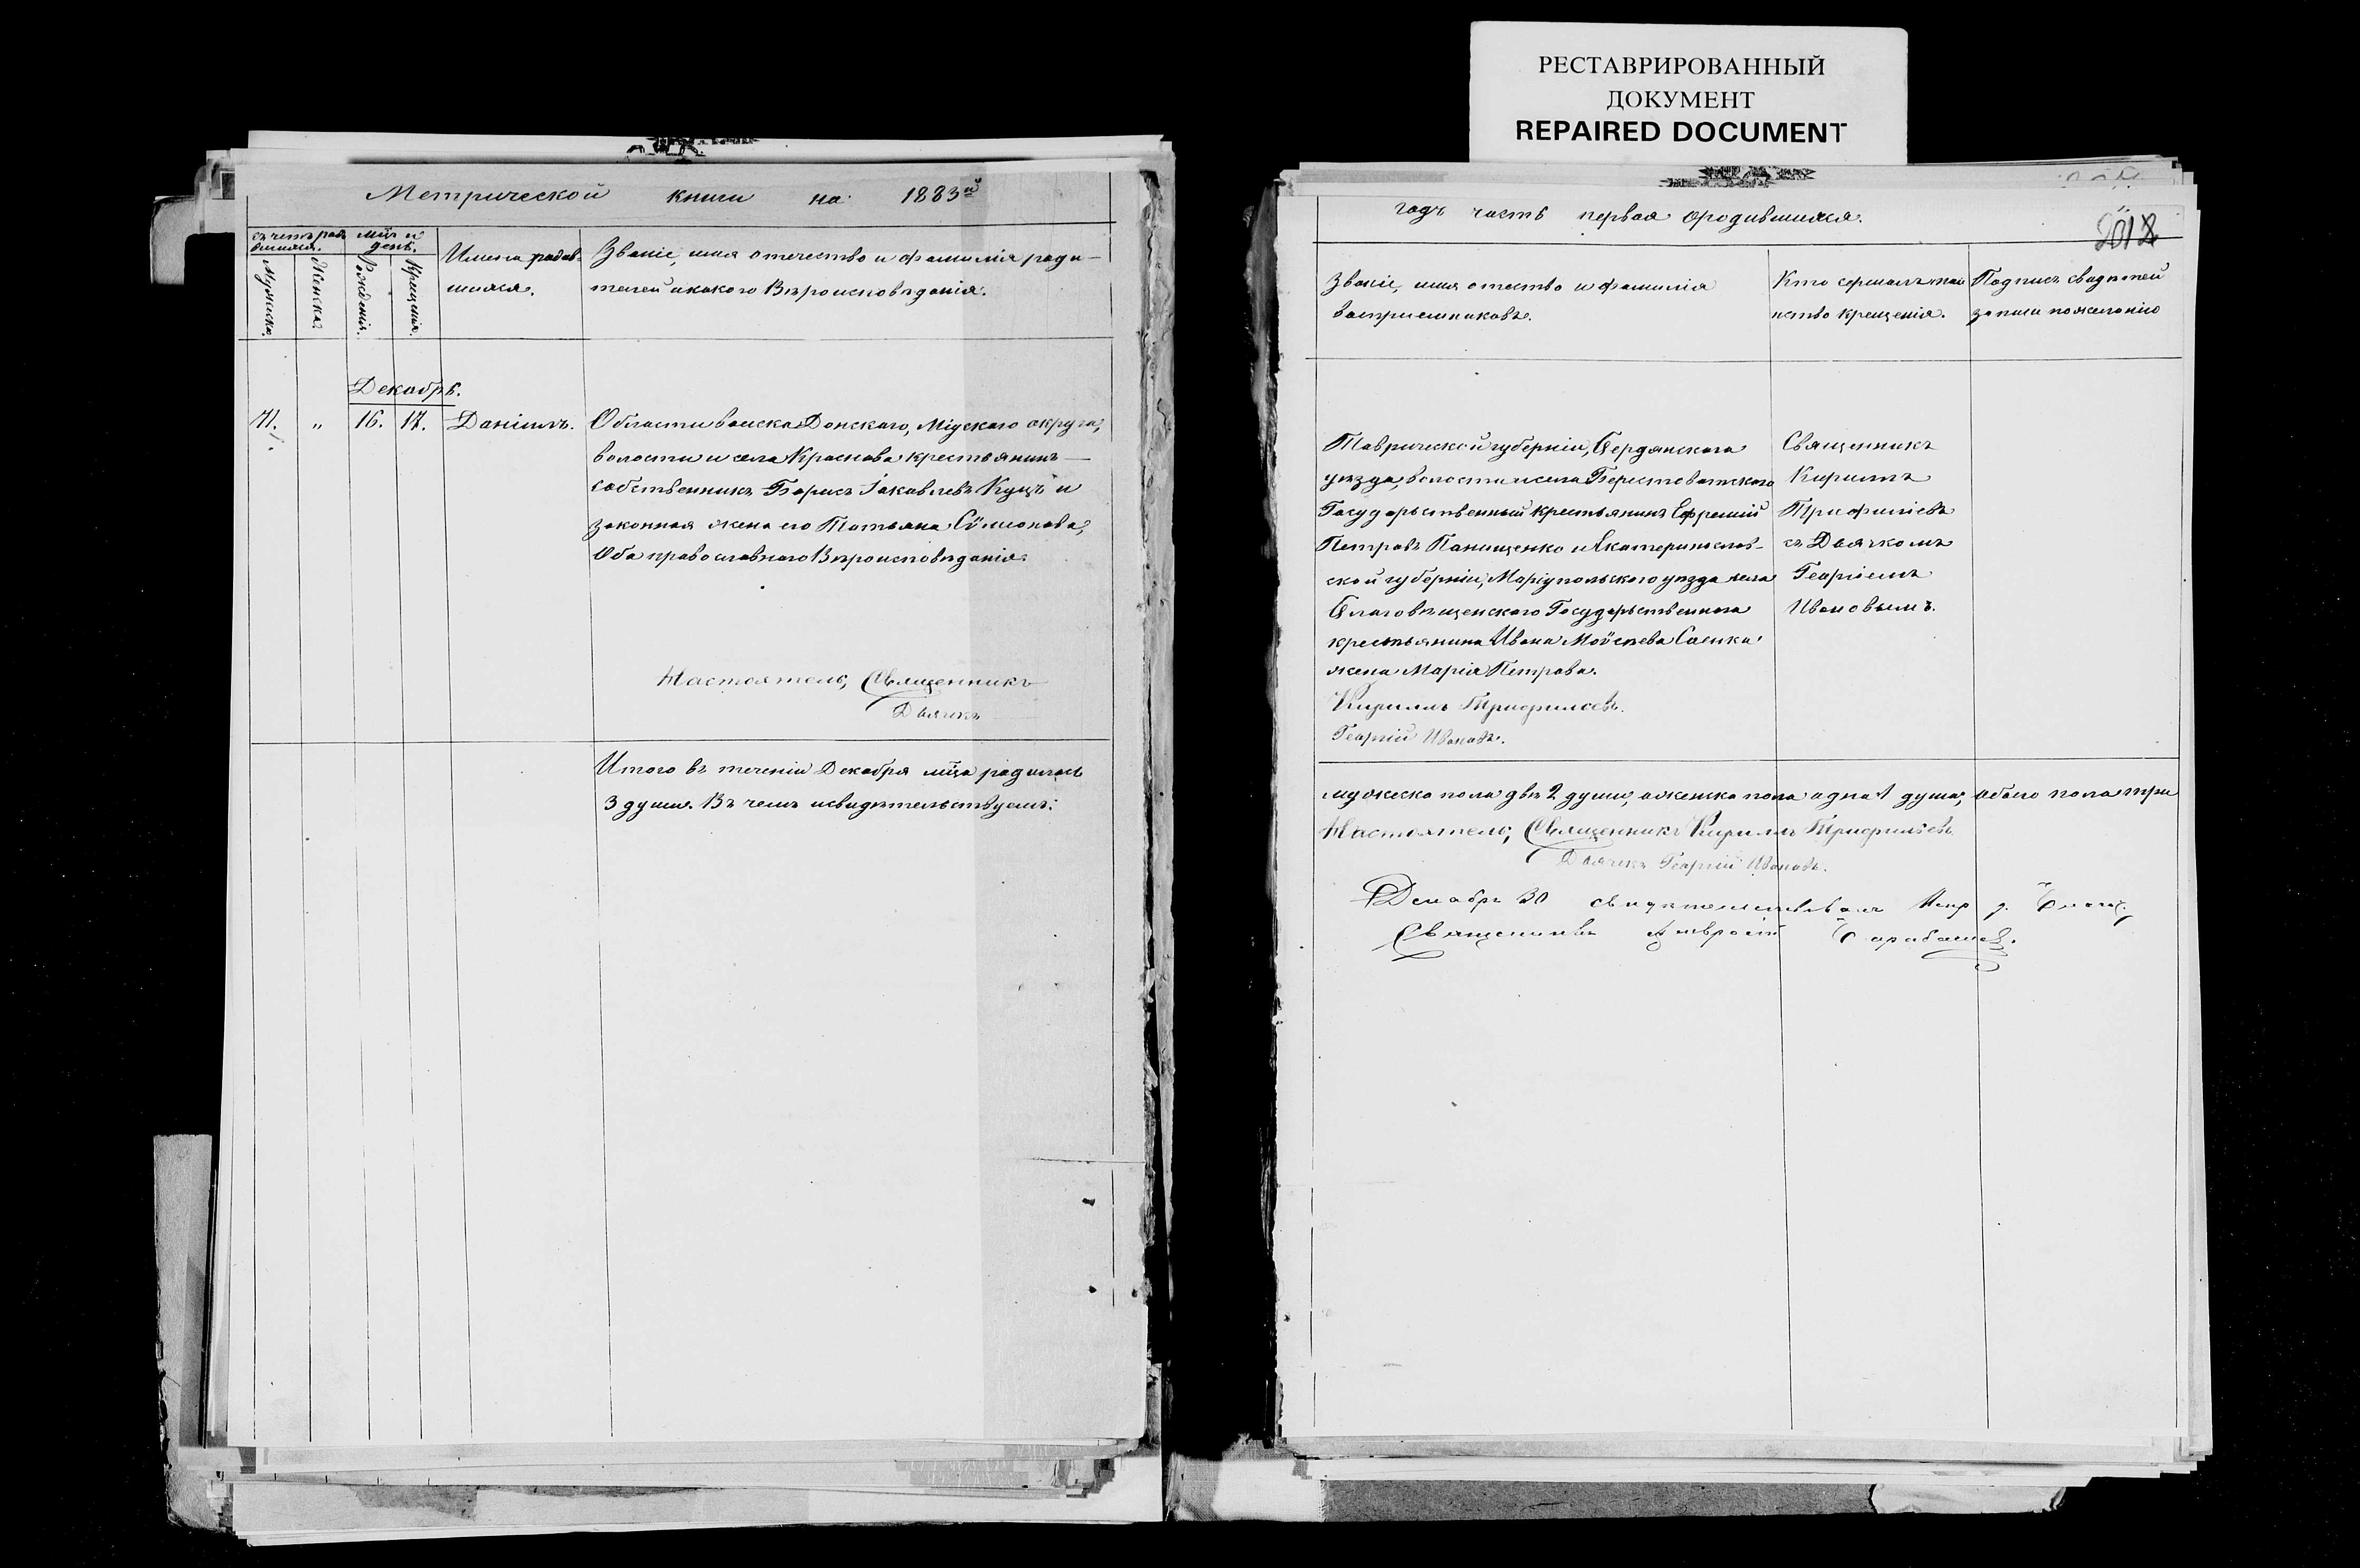 РЕСТАВРИРОВАННЫЙ
ДОКУМЕНТ
REPAIRED DOCUMENT
Метрической книги на 1883й
счетъ родившихся.
мц҃ъ и день.
Мужска.
Женска.
Рожденія.
Крещенія.
Имена родив-
шихся.
Званіе, имя отечество и фамилія роди-
телей и какого Вѣроисповѣданія.
Декабрь.
41. „ 16. 17. Даніилъ.
Области войска Донскаго, Міускаго округа,
волости и села Краснова крестьянинъ
собственникъ Борисъ Іаковлевъ Куцъ и
законная жена его Татьяна Сѵмионова,
Оба православнаго Вѣроисповѣданія.
Настоятель, Священникъ
Дьячкъ
Итого въ теченіи Декабря мц҃а родилось
3 души. Въ чемъ и свидѣтельствуемъ:
годъ часть первая ородившихся.
Званіе, имя отчество и фамилія
воспріемниковъ.
Кто совершалъ таи
нство крещенія.
Подпись свидѣтелей
записи по желанію
Таврической губерніи, Бердянскаго
уѣзда, волости и села Берестоватскаго
Государственный крестьянинъ Ефремій
Петровъ Панищенко и Екатеринослав-
ской губерніи, Маріупольскаго уѣзда села
Благовѣщенскаго Государственнаго
крестьянина Ивана Моѵсѣева Саенка
жена Марія Петрова.
Кириллъ Трифиліевъ.
Георгій Ивановъ.
Священникъ
Кириллъ
Трифиліевъ
съ Дьячкомъ
Георгіемъ
Ивановымъ.
мужеска пола двѣ 2 души, а женска пола одна 1 душа, обоего пола три
Настоятель, Священникъ Кириллъ Трифиліевъ
Дьячкъ Георгій Ивановъ.
Декабря 30 свидѣтельствовалъ
Священникъ Амвросій